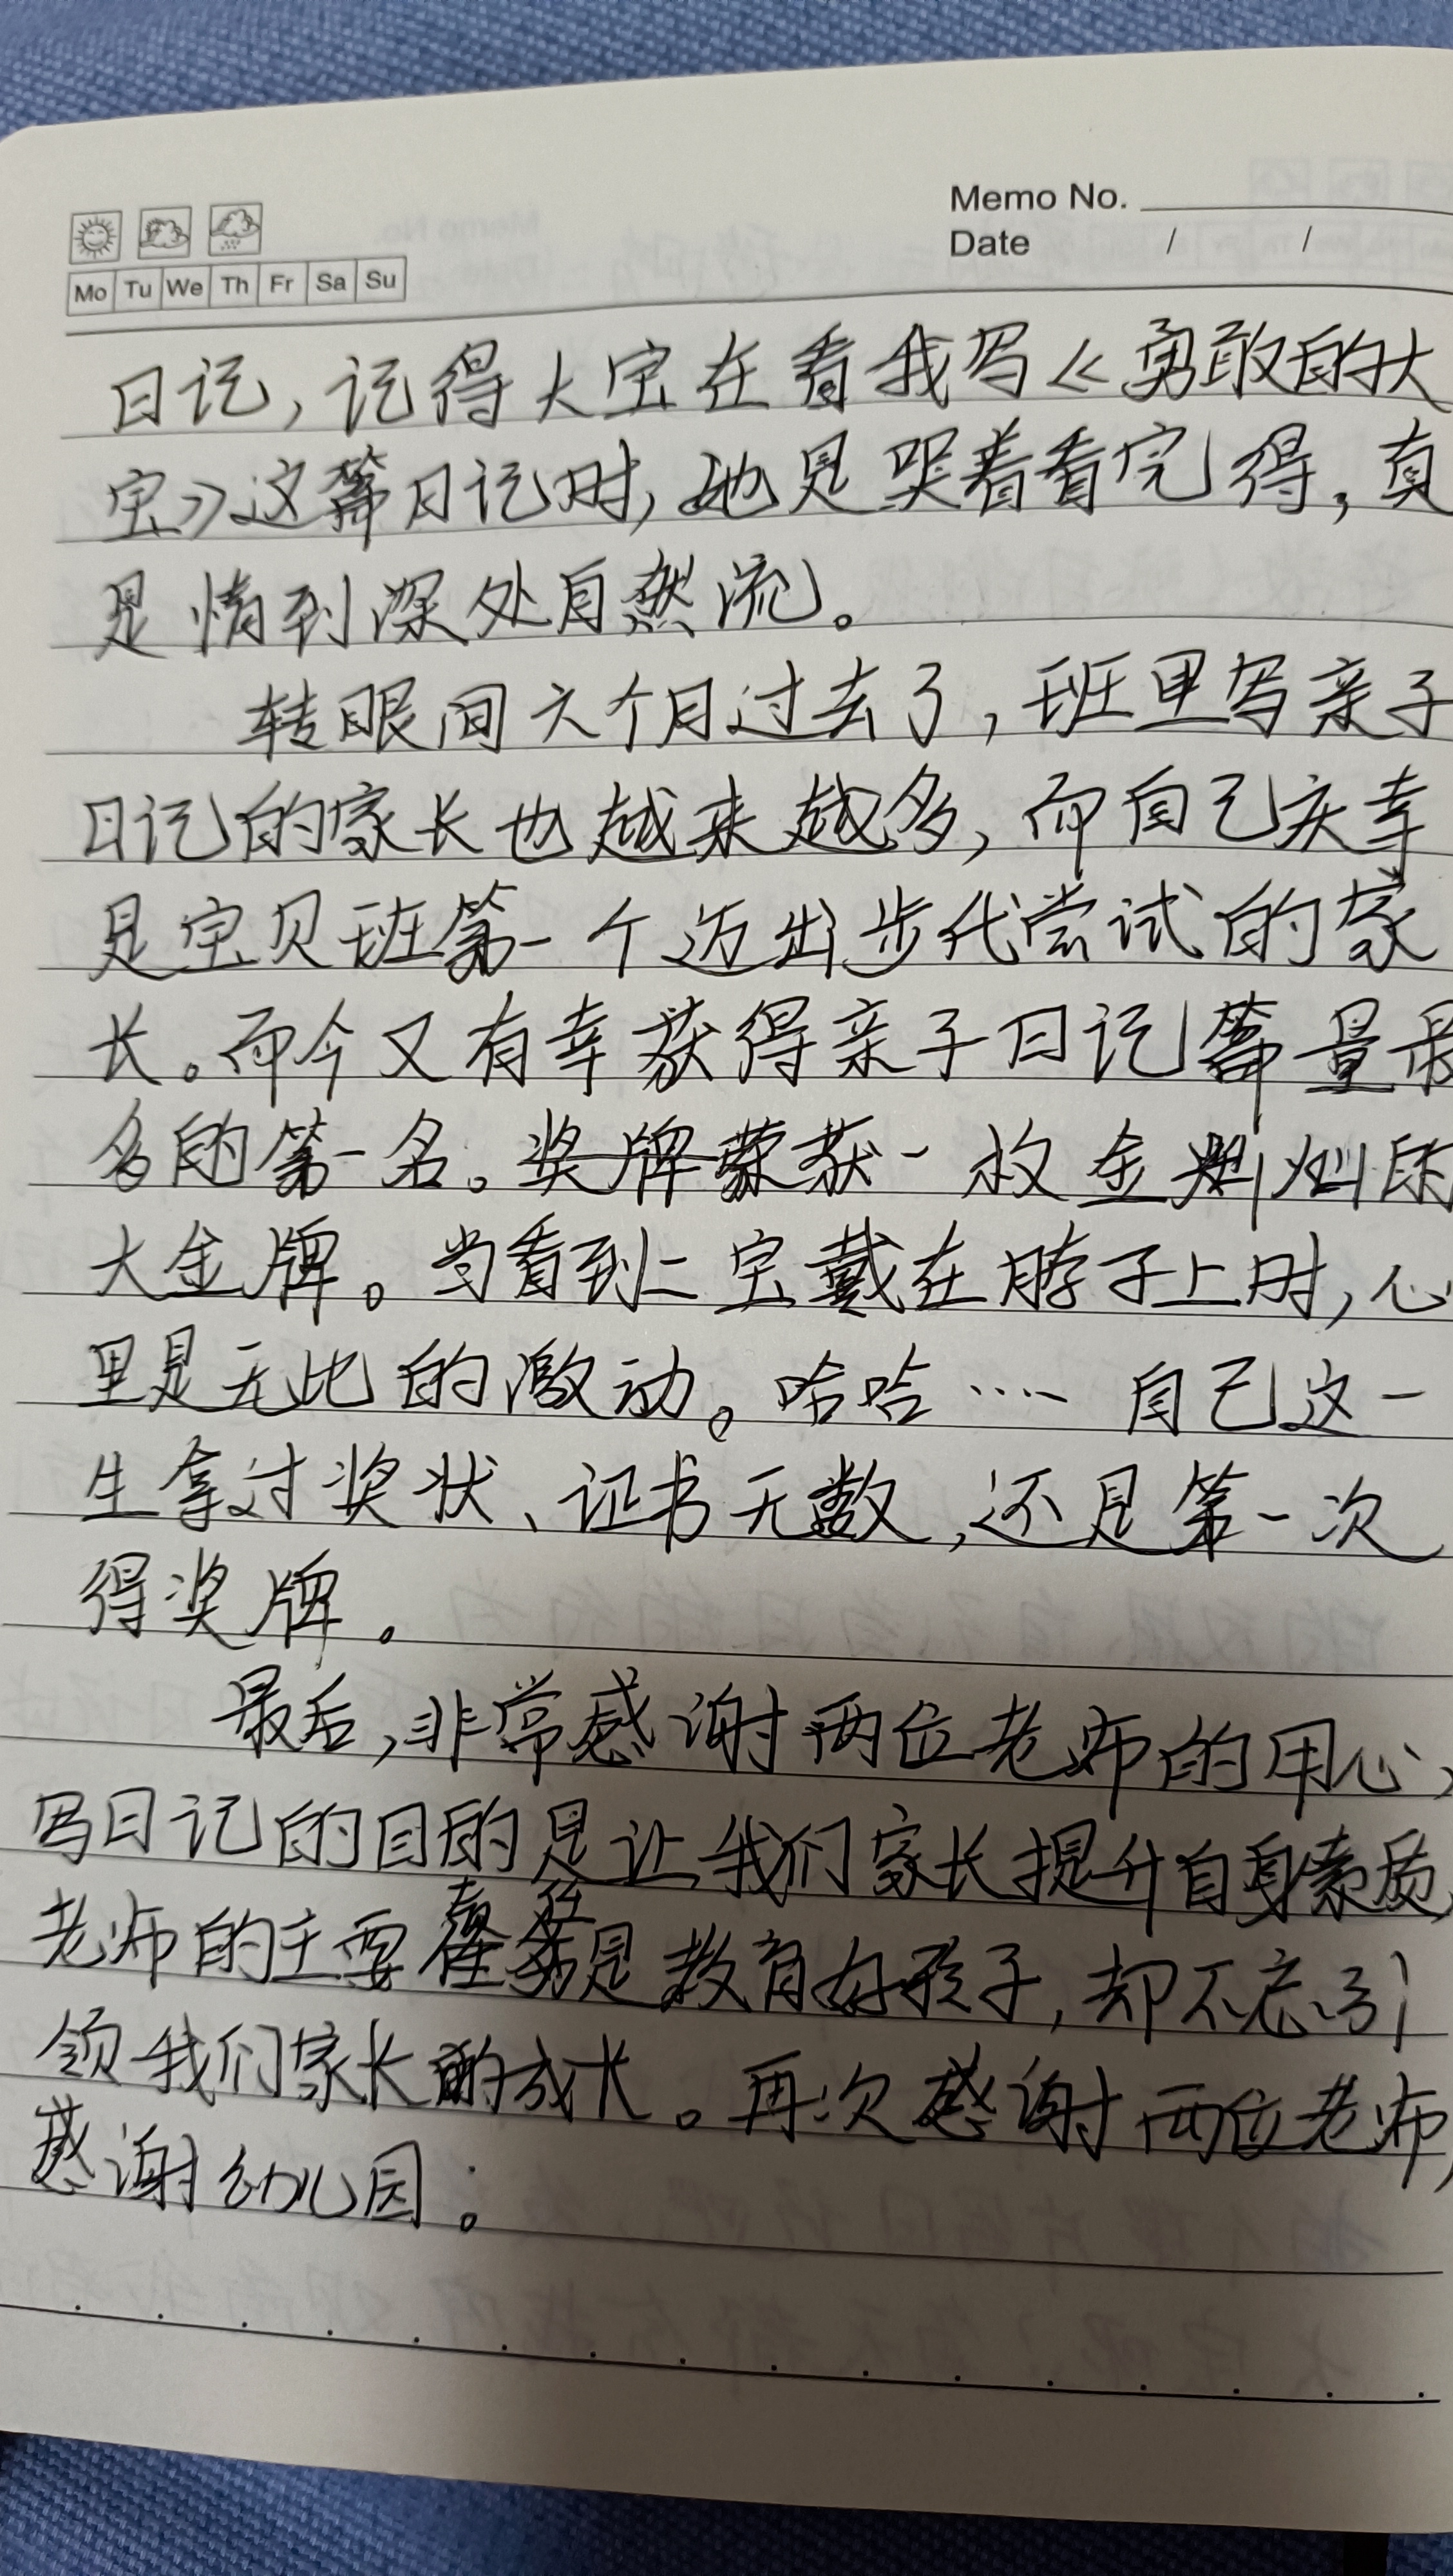 Memo No.
Date / /
Mo Tu We Th Fr Sa Su
日记,记得大宝在看我写《勇敢的大
宝》这篇日记时,她是哭着看完得,真
是情到深处自然流。
转眼间六个月过去了,班里写亲子
日记的家长也越来越多,而自己庆幸
是宝贝班第一个迈出步伐尝试的家
长。而今又有幸获得亲子日记篇量最
多的第一名。奖牌荣获一枚金灿灿的
大金牌。当看到二宝戴在脖子上时,心
里是无比的激动。哈哈…… 自己这一
生拿过奖状、证书无数,还是第一次
得奖牌。
最后,非常感谢两位老师的用心,
写日记的目的是让我们家长提升自身素质,
老师的主要责任是教育好孩子,却不忘引
领我们家长的成长。再次感谢两位老师,
感谢幼儿园。